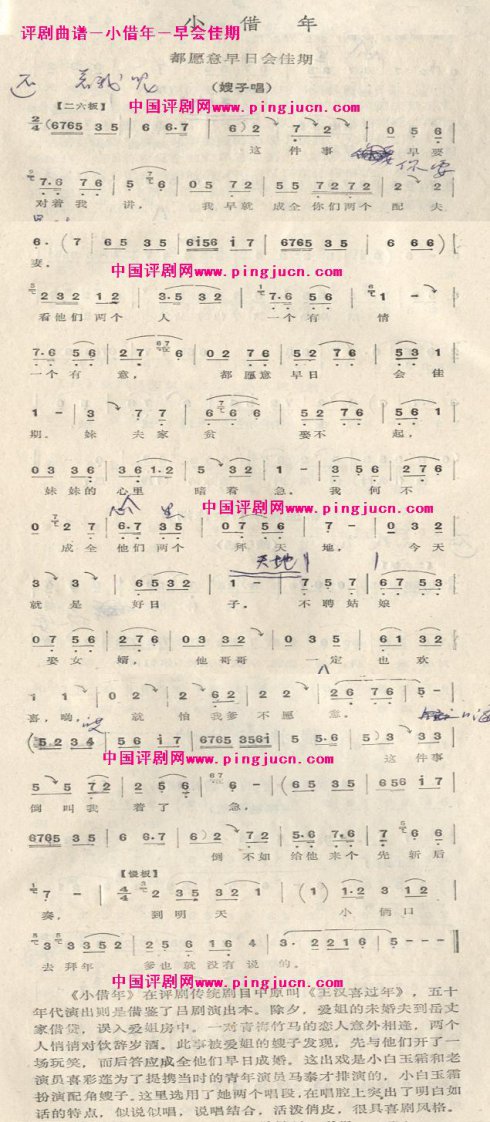 评剧曲谱—小借年—早会佳期
小 借 年
都愿意早日会佳期
（嫂子唱）
还
【二六板】
中国评剧网www.pingjucn.com
2/4 (6765 35 | 6 6·7 | 6) 2 | 7 2 | 0 5 6 |
这 件 事 早 要
你要
7·6 7 6 | 5 6 | 0 5 7 2 | 5 5 7 2 7 2 | 2 2 |
对着 我 讲， 我早就 成全你们两个 配 夫
6· (7 | 65 35 | 6i56 i7 | 6765 35 | 6 6 6) |
妻。
中国评剧网www.pingjucn.com
2 3 2 1 2 | 3·5 3 2 | 7·6 5 6 | 1 - |
看他们 两个 人 一个 有 情
7·6 5 6 | 2 7 6 | 0 2 7 6 | 5 2 7 6 | 5 3 1 |
一个 有 意， 都愿意 早日 会 佳
1 - | 3 7 7 | 6 6 6 | 5 2 7 6 | 5 6 1 |
期。 妹 夫家 贫 娶不 起，
0 3 3 6 | 3 6 1·2 | 5 3 2 | 1 - | 3 5 6 | 2 7 6 |
妹妹的 心里 暗着 急。 我 何不
中国评剧网www.pingjucn.com
0 2 7 | 6·7 3 5 | 0 7 5 6 | 7 - | 0 3 2 |
成全 他们两个 拜天 地， 今天
天地
3 3 | 6 5 3 2 | 1 - | 7 5 7 | 6 7 5 3 |
就 是 好日 子。 不聘 姑娘
0 7 5 6 | 2 7 6 | 0 3 3 2 | 0 3 5 | 6 1 3 2 |
娶女 婿， 他哥哥 一定 也欢
1 1 | 0 2 | 2 6 2 | 2 2 | 2 6 7 6 | 5 - |
喜，哟， 就 怕我 爹 不愿 意。
(5 2 3 4 | 5 6 i 7 | 6765 3561 | 5 5·6 | 5) 3 | 3 3 |
这 件事
中国评剧网www.pingjucn.com
5 5 7 2 | 2 1 2 | 5 - | (6 5 3 5 | 6 5 6 i 7 |
倒 叫我 着了 急，
6765 35 | 6 6·7 | 6) 2 7 2 | 5·6 7·6 | 7 6 6 |
倒 不如 给他来个 先 斩后
【慢板】
7 - | 4/4 2 3 5 3 2 1 | (1) 1·2 3 1 2 |
奏， 到明 天 小俩口
3 3 3 5 2 | 2 5 6 1 6 4 | 3· 2 2 1 6 1 | 5 - - - ‖
去拜年 爹也就没有 说 的。
中国评剧网www.pingjucn.com
《小借年》在评剧传统剧目中原叫《王汉喜过年》，五十
年代演出则是借鉴了吕剧演出本。除夕，爱姐的未婚夫到岳丈
家借贷，误入爱姐房中。一对青梅竹马的恋人意外相逢，两个
人悄悄对饮辞岁酒。此事被爱姐的嫂子发现，先与他们开了一
场玩笑，而后答应成全他们早日成婚。这出戏是小白玉霜和老
演员喜彩莲为了提携当时的青年演员马泰才排演的，小白玉霜
扮演配角嫂子。这里选用了她两个唱段，在唱腔上突出了明白如
话的特点，似说似唱，说唱结合，活泼俏皮，很具喜剧风格。